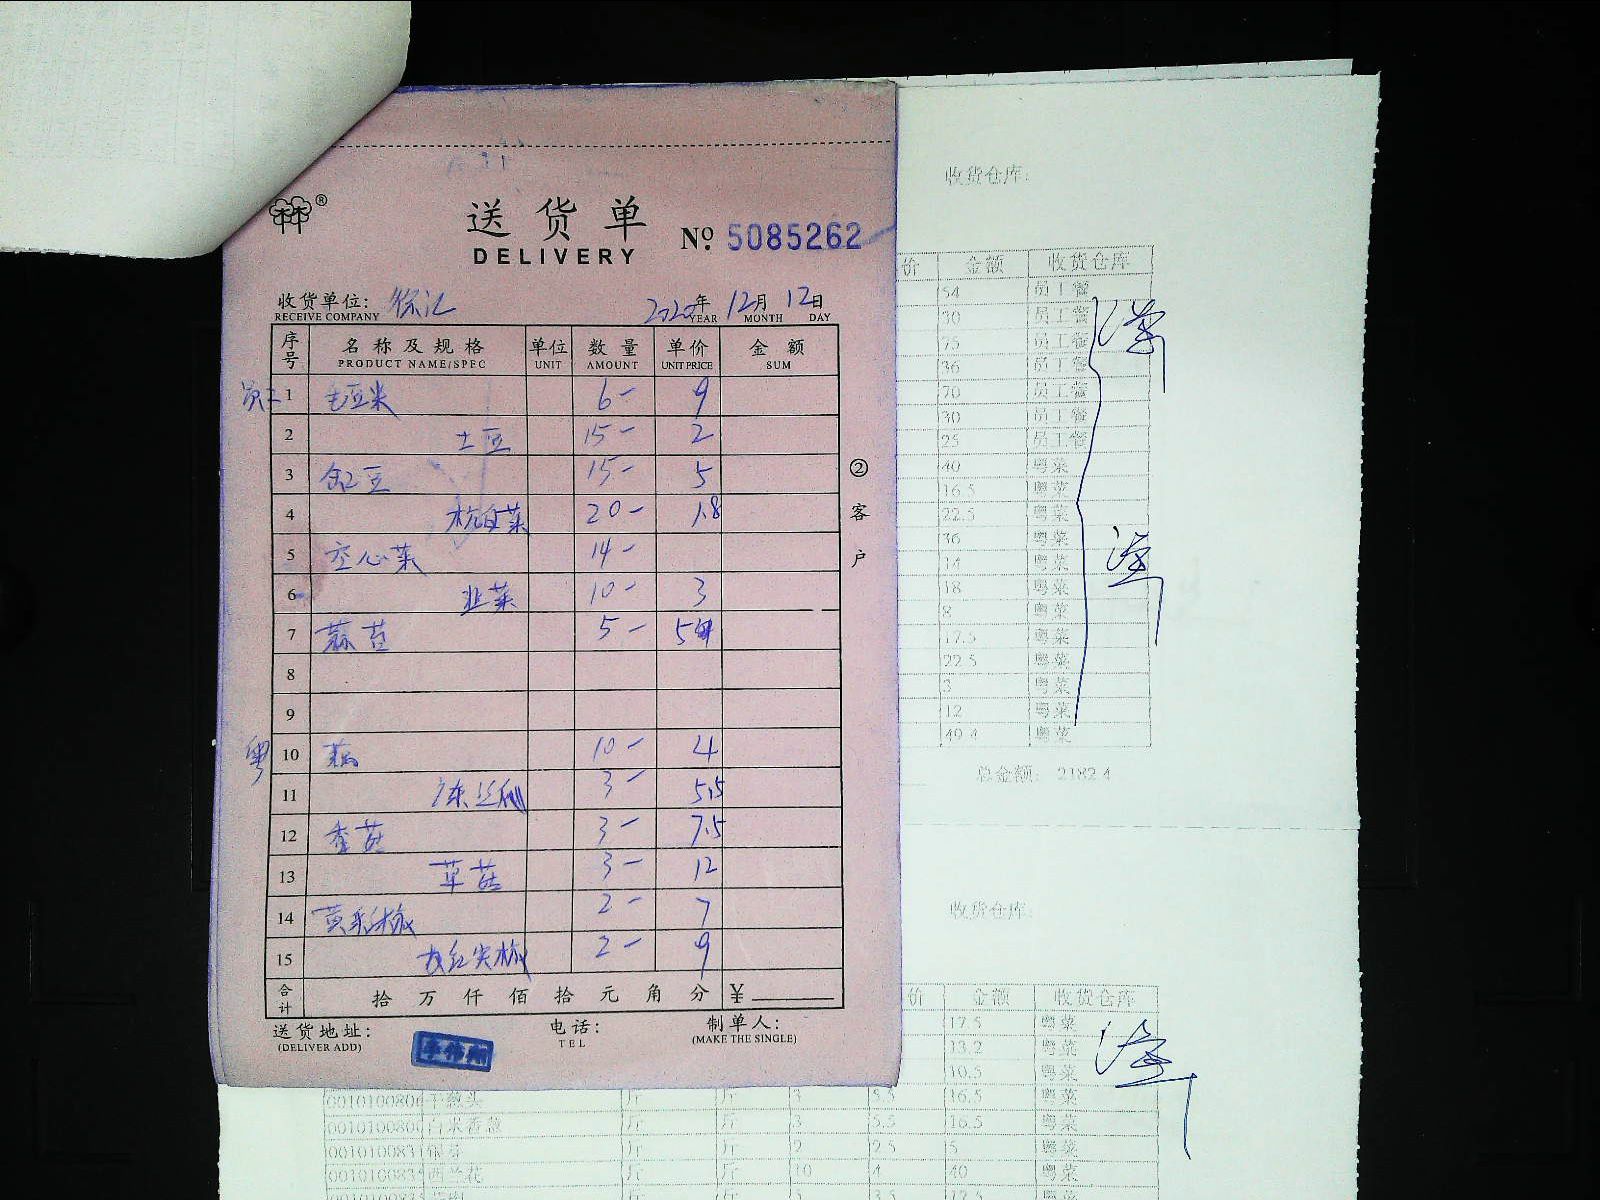 送货单
DELIVERY
№ 5085262
收货单位: 徐汇 2020年 12月 12日
RECEIVE COMPANY YEAR MONTH DAY
序号 名称及规格 单位 数量 单价 金额
PRODUCT NAME/SPEC UNIT AMOUNT UNIT PRICE SUM
员工 1 毛豆米 6- 9
2 土豆 15- 2
3 缸豆 15- 5
4 杭白菜 20- 1.8
5 空心菜 14-
6 韭菜 10- 3
7 蒜苔 5- 5
8
9
粤 10 藕 10- 4
11 广东丝瓜 3- 5.5
12 香菇 3- 7.5
13 草菇 3- 12
14 黄彩椒 2- 7
15 大红尖椒 2- 9
合计 拾 万 仟 佰 拾 元 角 分 ¥
送货地址: 电话: 制单人:
(DELIVER ADD) TEL (MAKE THE SINGLE)
②客户
收货仓库:
价 金额 收货仓库
54 员工餐
30 员工餐
75 员工餐
36 员工餐
70 员工餐
30 员工餐
25 员工餐
40 粤菜
16.5 粤菜
22.5 粤菜
36 粤菜
14 粤菜
18 粤菜
8 粤菜
17.5 粤菜
22.5 粤菜
3 粤菜
12 粤菜
49.4 粤菜
总金额: 2182.4
收货仓库:
价 金额 收货仓库
17.5 粤菜
13.2 粤菜
10.5 粤菜
干葱头 斤 斤 3 5.5 16.5 粤菜
斤 斤 3 5.5 16.5 粤菜
银芽 斤 斤 2 2.5 5 粤菜
西兰花 斤 斤 10 4 40 粤菜
斤 斤 5 3.5 17.5 粤菜